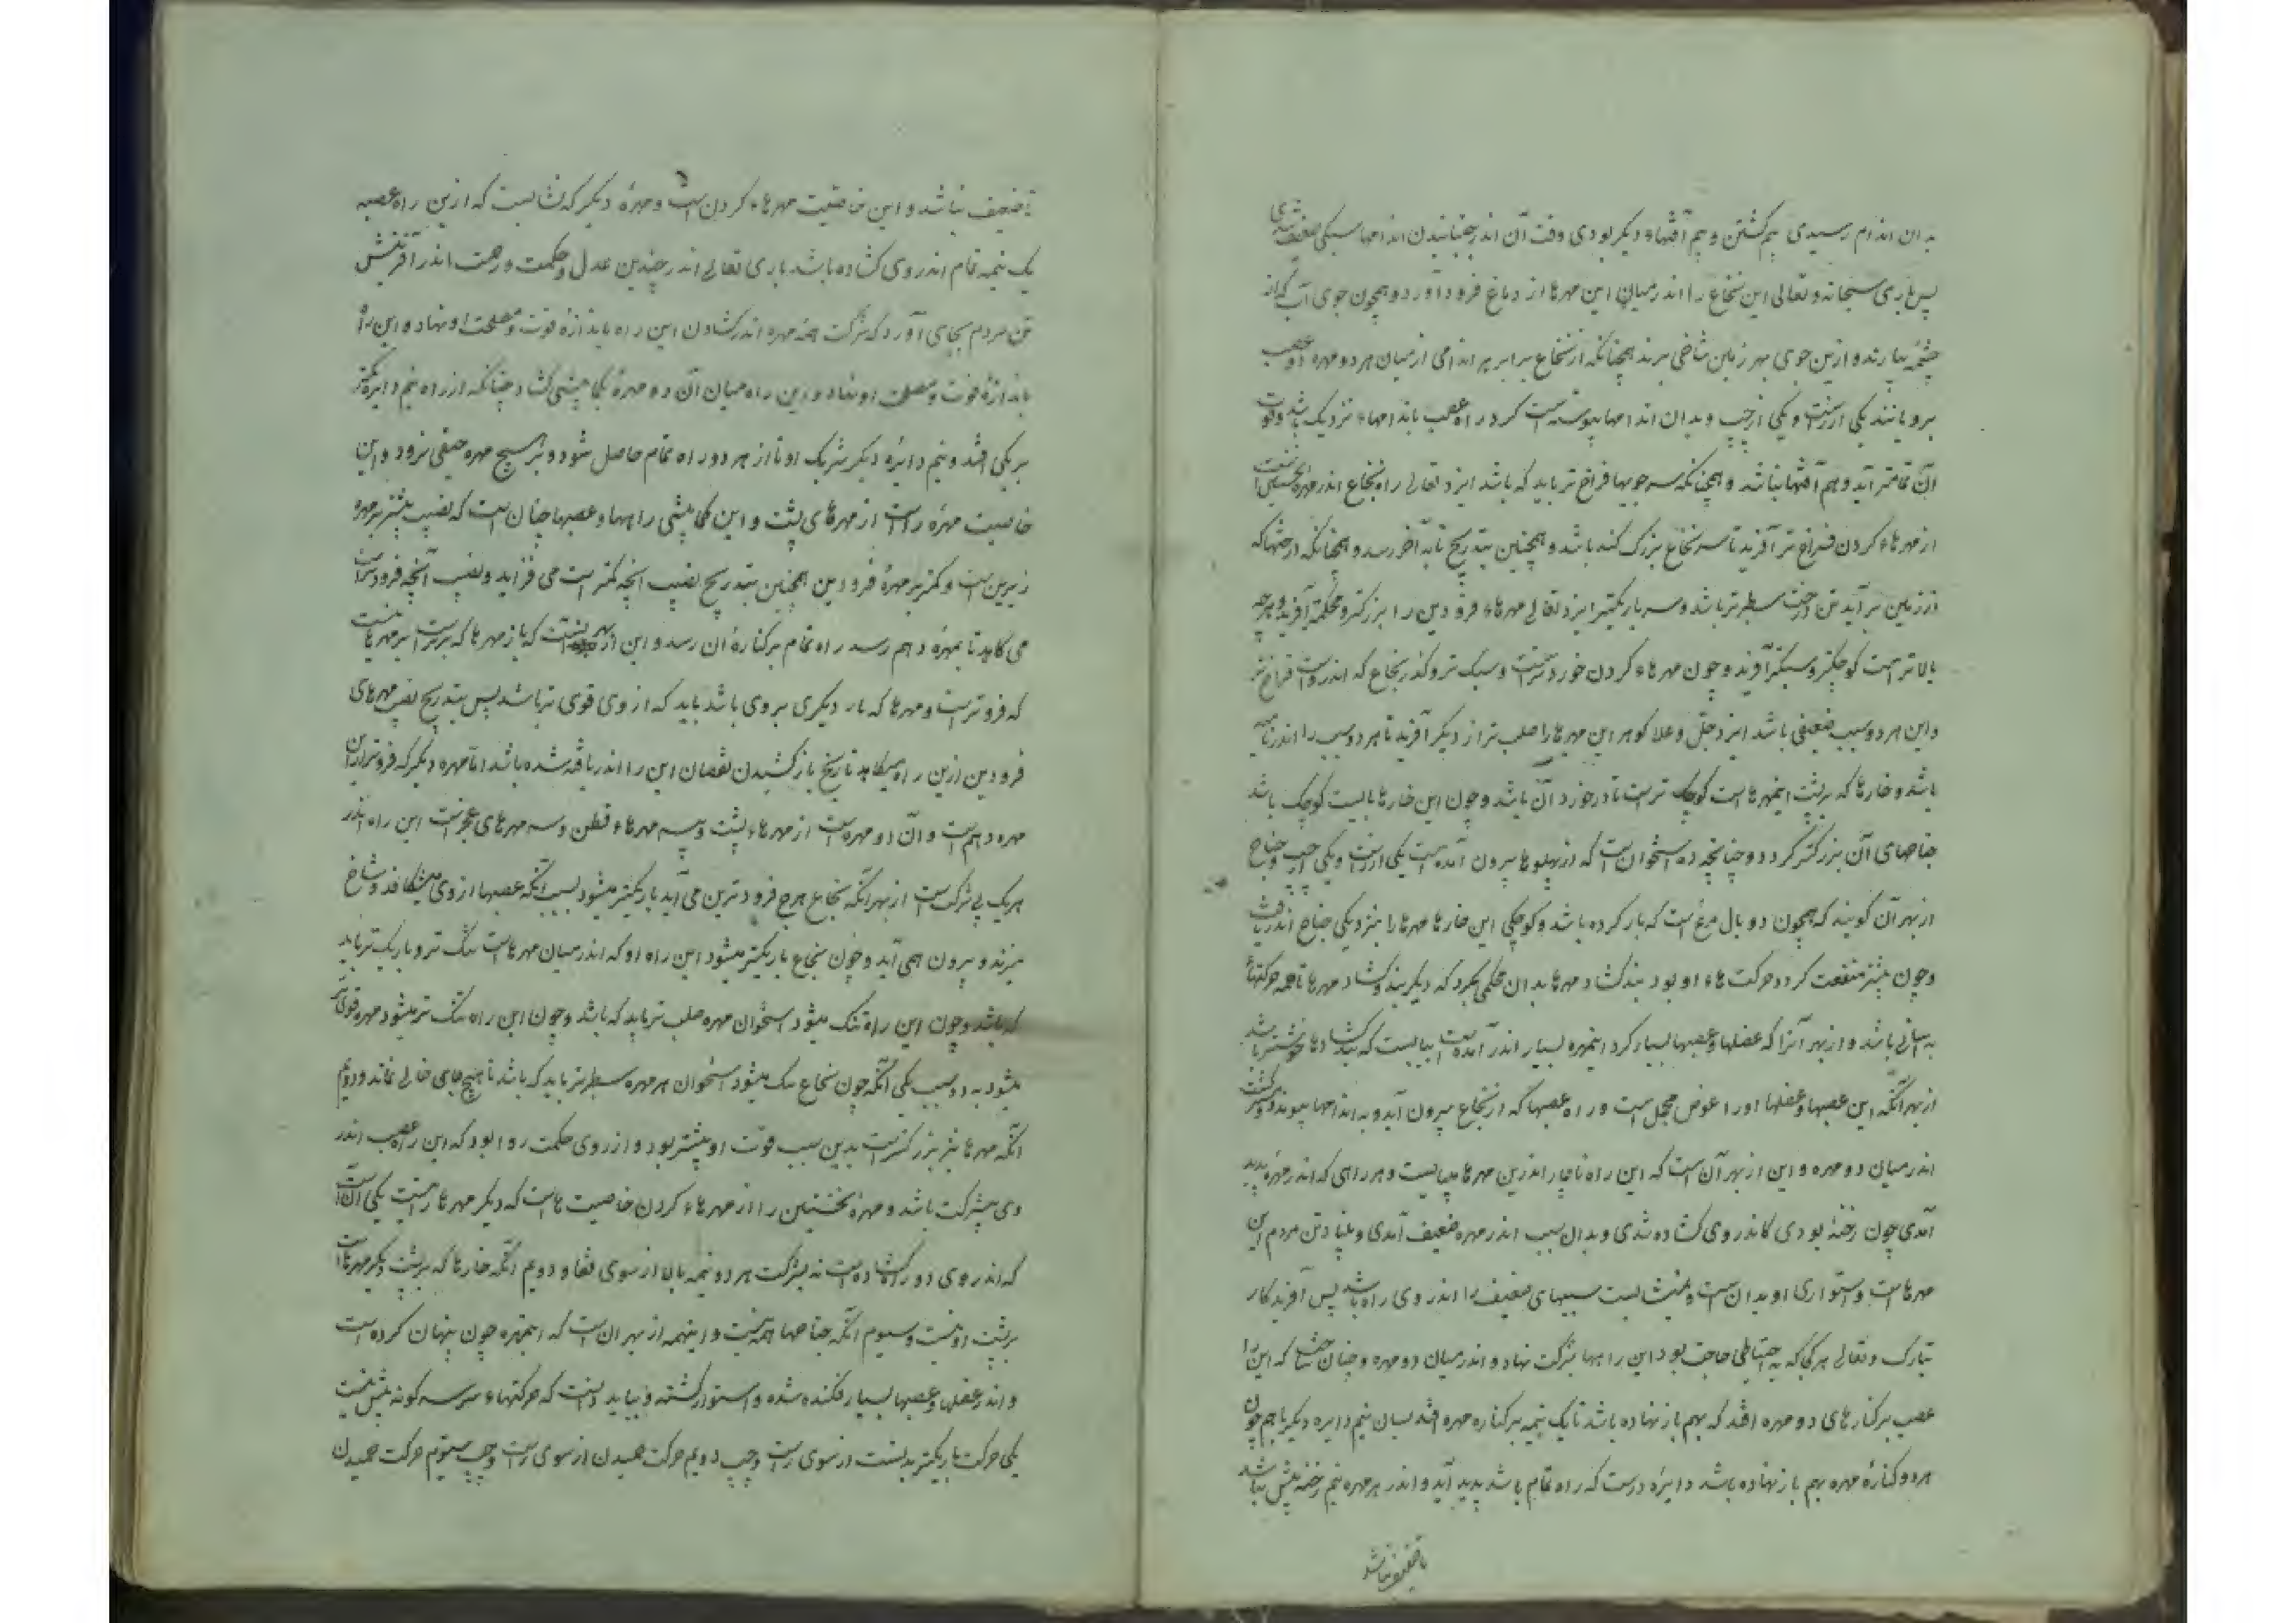 به ان اندام رسیدی هم گشتن و هم آفتهاء دیگر بودی وقت آن اندر جنبانیدن اندامها سبکی ضعیف شدی
پس باری سبحانه و تعالی این نخاع را اندر میان این مهرها از دماغ فرود آورد و همچون جوی آب که از
چشمه بیارند و ازین جوی بهر زمین شاخی برند همچنانکه از نخاع برابر هر اندامی از میان هر دو مهره دو عصب
برویانند یکی از راست و یکی از چپ و بدان اندامها پیوسته است کرد راه عصب باندامهاء نزدیک باشد و قوت
آن تمامتر آید و هم آفتها نباشد و همچنانکه سر جویها فراخ تر باید که باشد ایزد تعالی راه نخاع اندر مهره نخستین
از مهرهاء کردن فراخ تر آفرید تا سر نخاع بزرک کند باشد و همچنین بتدریج تا به آخر رسد و همچنانکه درختها که
از زمین بر آید تن درخت سطبرتر باشد و سر باریکتر ایزد تعالی مهرهاء فرودین را بزرکتر و محکمتر آفرید و هرچه
بالاتر است کوچکتر و سبکتر آفرید و چون مهرهاء کردن خوردترست و سبک تر و کذر نخاع که اندروست فراخ تر
و این هر دو سبب ضعیفی باشد ایزد جل و علا کوهر این مهرها را صلب تر از دیکر آفرید تا هر دو سبب را اندر یافته
باشد و خارها که بر پشت اینمهرهاست کوچک ترست تا در خورد آن باشد و چون این خارها بایست کوچک باشد
جناحهای آن بزرکتر کردد و جناحچه ده استخوان است که از پهلوها بیرون آمده است یکی از راست و یکی از چپ و جناح
از بهر آن کویند که همچون دو بال مرغ است که باز کرده باشد و کوچکی این خارها مهرها را بنزدیکی جناح اندر یافت
و چون بیشتر منفعت کردد حرکت هاء او بود بند کشاد مهرها بدان محکمی نکرد که دیکر بند و کشاد مهرها تا همه حرکتها
به آسانی باشد و از بهر آنرا که عضلها و عصبها بسیار کرد اینمهره بسیار اندر آمده است
از بهر آنکه این عصبها و عضلها او را عوض محمل است و راه عصبها که از نخاع بیرون آید و به اندامها پیوندد
اندر میان دو مهره و این از بهر آن است که این راه ناچار اندرین مهرها میبایست و هر راهی که اندر مهره پدید
آمدی چون رخنهٔ بودی کاندر وی کشاده شدی و بدان سبب اندر مهره ضعیف آمدی و بنیاد تن مردم این
مهرهاست و استواری او بدان است و نمی شایست سببهای ضعیف را اندر وی راه باشد پس آفریدکار
تبارک و تعالی هر کجا که به احتیاطی حاجت بود این راهها بشرکت نهاد و اندر میان دو مهره و چنان ساخت که این راه
عصب بر کنارهای دو مهره افتد که بهم باز نهاده باشد تا یک نیمه بر کناره مهره افتد بسان نیم دایره دیکر با هم چون
هر دو کنارهٔ مهره بهم باز نهاده باشد دایرهٔ درست که راه تمام باشد پدید آید و اندر هر مهره نیم رخنه بیش نباشد
تا ضعیف نباشد
تا ضعیف نباشد و این خاصیت مهرهاء کردن است و مهرهٔ دیکر که نشایست که ازین راه عصبه
یک نیمه تمام اندر وی کشاده باشد باری تعالی اندر چندین عدل و حکمت و رحمت اندر آفرینش
تن مردم بجای آورد که شرکت همه مهره اندر کشادن این راه باندازهٔ قوت و مصلحت او نهاد و این راه
باندازهٔ قوت و مصلحت او نهاد و این راه میان آن دو مهرهٔ بکمابیشی کشاد چنانکه از راه نیم دایره بزرکتر
بر یکی افتد و نیم دایرهٔ دیکر شریک او تا از هر دو راه تمام حاصل شود و بر هیچ مهره حیفی نرود و این
خاصیت مهره راست از مهرهای پشت و این کمابیشی راهها و عصبها چنان است که نصیب بیشتر بر مهره
زیرین است و کمتر بر مهرهٔ فرودین همچنین بتدریج نصیب انچه کمتر است می فزاید و نصیب آنچه فرودتراست
می کاهد تا بمهرهٔ دهم رسد راه تمام بر کنارهٔ ان رسد و این از بهر آنست که باز مهرها که برترست بر مهرهاست
که فروترست و مهرها که بار دیکری بر وی باشد باید که از وی قوی تر باشد پس بتدریج نصیب مهرهای
فرودین ازین راه میکاهد تا رنج بار کشیدن نقصان این را اندر یافته شده باشد اما مهره دیکر که فروتر ازان
مهره دهم است و آن دو مهره است از مهرهاء پشت و سه مهرهاء قطن و سه مهرهای عجزست این راه اندر
هر یک بی شرکت است از بهر آنکه نخاع هرچ فرودترین می آید باریکتر میشود بسبب آنکه عصبها از وی میشکافد و شاخ
میزند و بیرون همی آید و چون نخاع باریکتر میشود این راه او که اندر میان مهرهاست تنک تر و باریک تر باید
که باشد و چون این راه تنک میشود استخوان مهره صلب تر باید که باشد و چون این راه تنک تر میشود مهره قوی تر
میشود به دو سبب یکی آنکه چون نخاع تنک میشود استخوان هر مهره سطبرتر باید که باشد تا هیچ جای خالی نماند و دویم
آنکه مهرها نیز بزرکترست بدین سبب قوت او بیشتر بود و از روی حکمت روا بود که این راه عصب اندر
وی بیشرکت باشد و مهره نخستین را از مهرهاء کردن خاصیت هاست که دیکر مهرها را نیست یکی آن است
که اندر وی دو راه کشاده است نه بشرکت هر دو نیمه بالا از سوی قفا و دویم آنکه خارها که بر پشت دیکر مهرهاست
بر پشت او نیست و سیوم آنکه جناحها همه نیست و اینهمه از بهر ان است که اینمهره چون پنهان کرده است
و اندر عضلها و عصبها بسیار افکنده شده و استوار کشته و بباید دانست که حرکتهاء سر سه کونه بیش نیست
یکی حرکت باریکتر بدنست از سوی راست و چپ دویم حرکت خمیدن از سوی راست و چپ سیوم حرکت خمیدن